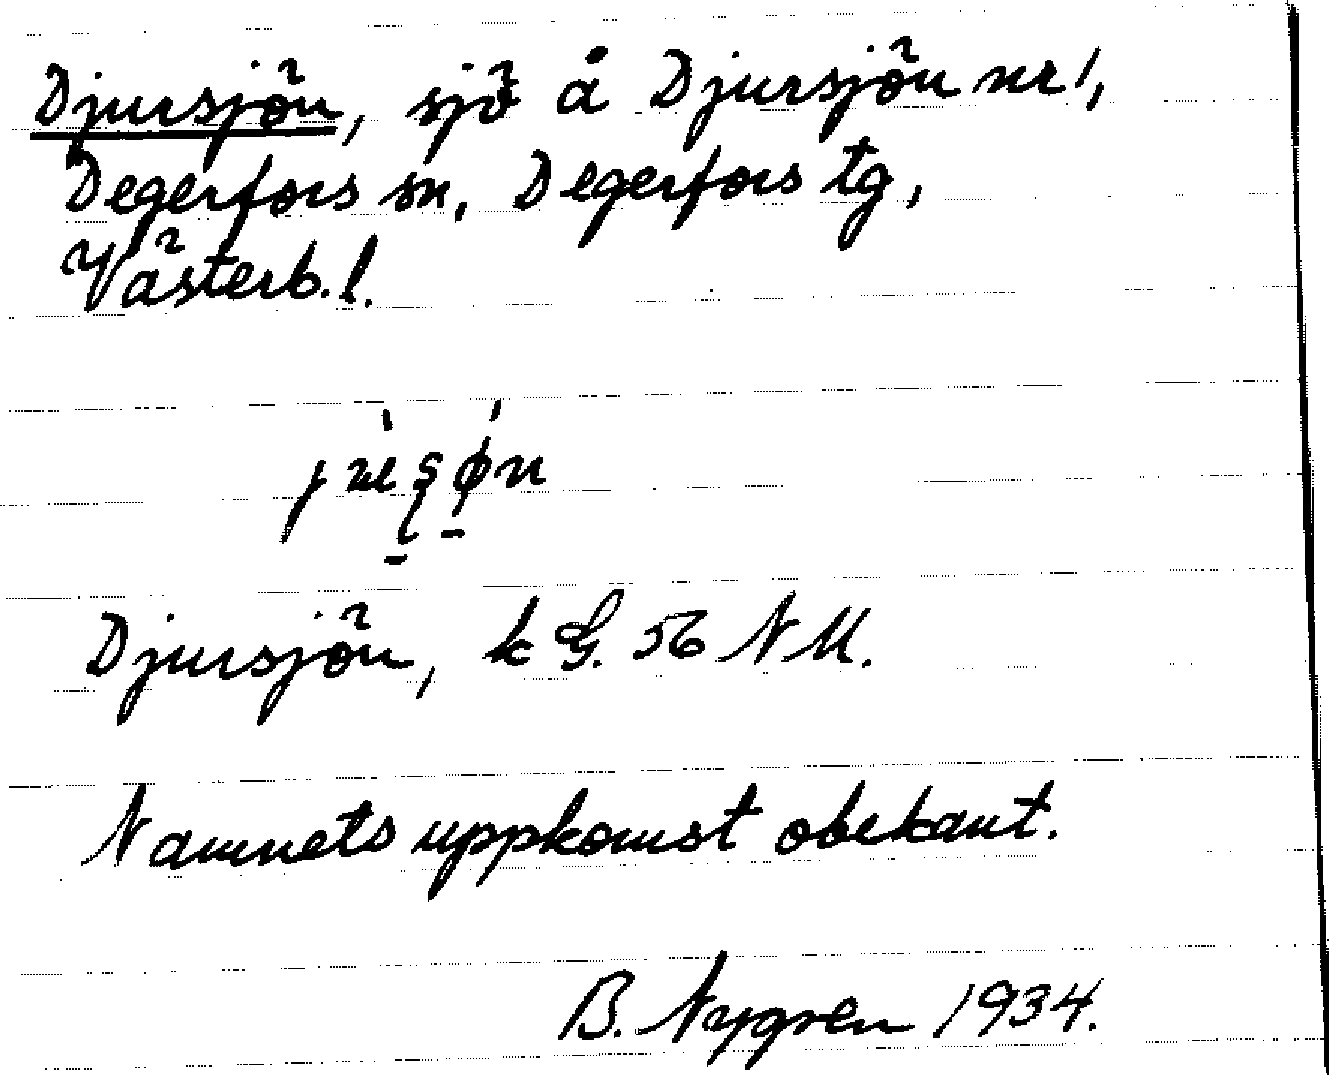 Djursjön, sjö å Djursjön nr 1,
Degerfors sn, Degerfors tg,
Västerb. l.
Djursjön, k G. 56 NU.
Namnets uppkomst obekant.
B. Nygren 1934.